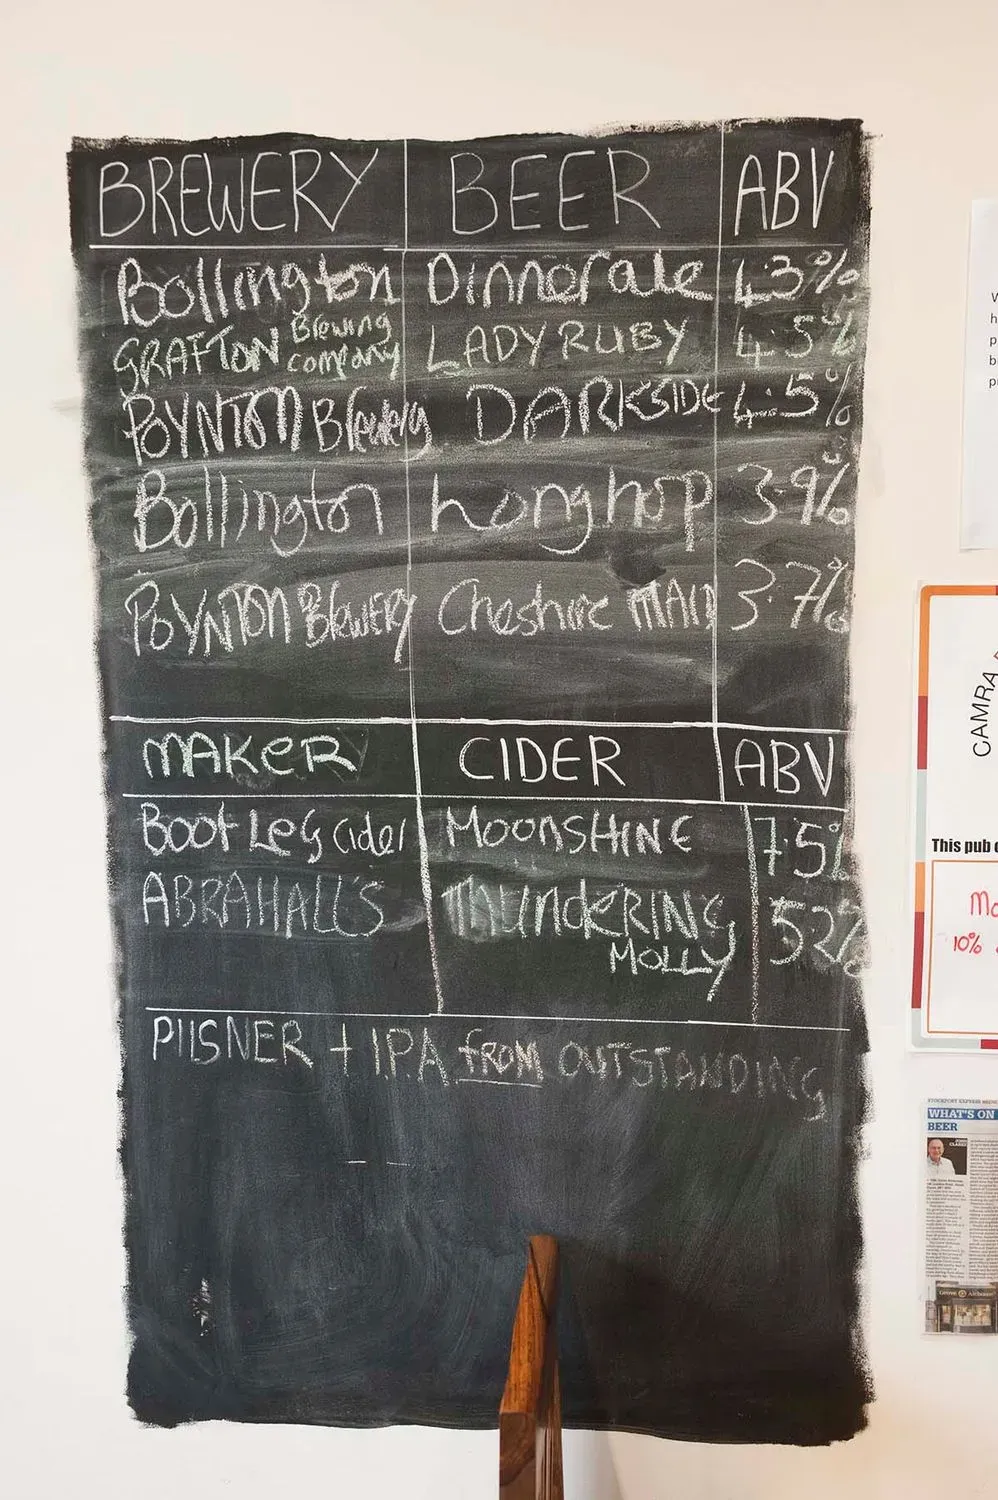 BREWERY BEER ABV
Bollington Dinnerale 4.3%
GRAFTON Brewing company LADY RUBY 4.5%
POYNTON Brewery DARKSIDE 4.5%
Bollington Longhop 3.9%
POYNTON BREWERY Cheshire MAID 3.7%
MAKER CIDER ABV
Boot Leg Cider MOONSHINE 7.5%
ABRAHALL'S THUNDERING MOLLY 5.2%
PILSNER + I.P.A from OUTSTANDING
CAMRA
This pub
10%
STOCKPORT EXPRESS
WHAT'S ON
BEER
JOHN CLARKE
Grove Alehouse